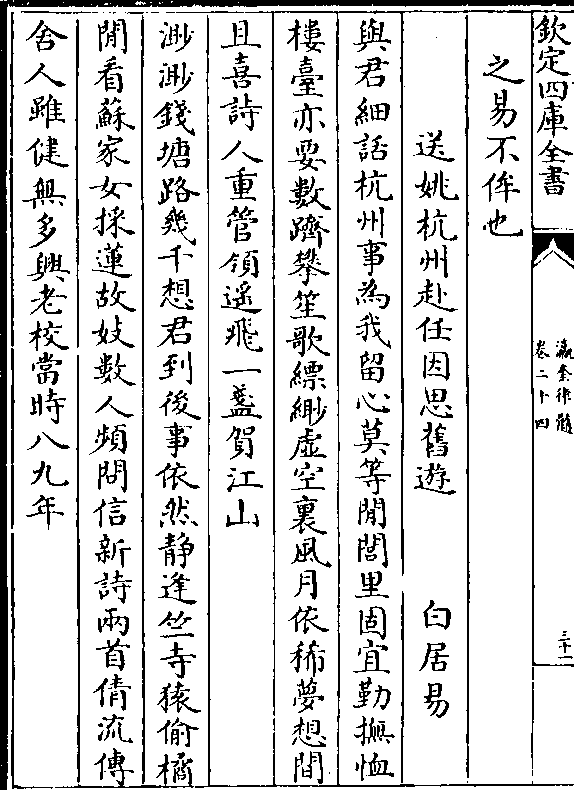 欽定四庫全書
瀛奎律髓
卷二十四
三十一
之易不侔也
送姚杭州赴任因思舊遊 白居易
與君細話杭州事為我留心莫等閒閭里固宜勤撫恤
樓臺亦要數躋攀笙歌縹緲虛空裏風月依稀夢想間
且喜詩人重管領遥飛一盞賀江山
渺渺錢塘路幾千想君到後事依然静逢竺寺猿偷橘
閒看蘇家女採蓮故妓數人頻問信新詩兩首倩流傳
舍人雖健無多興老校當時八九年